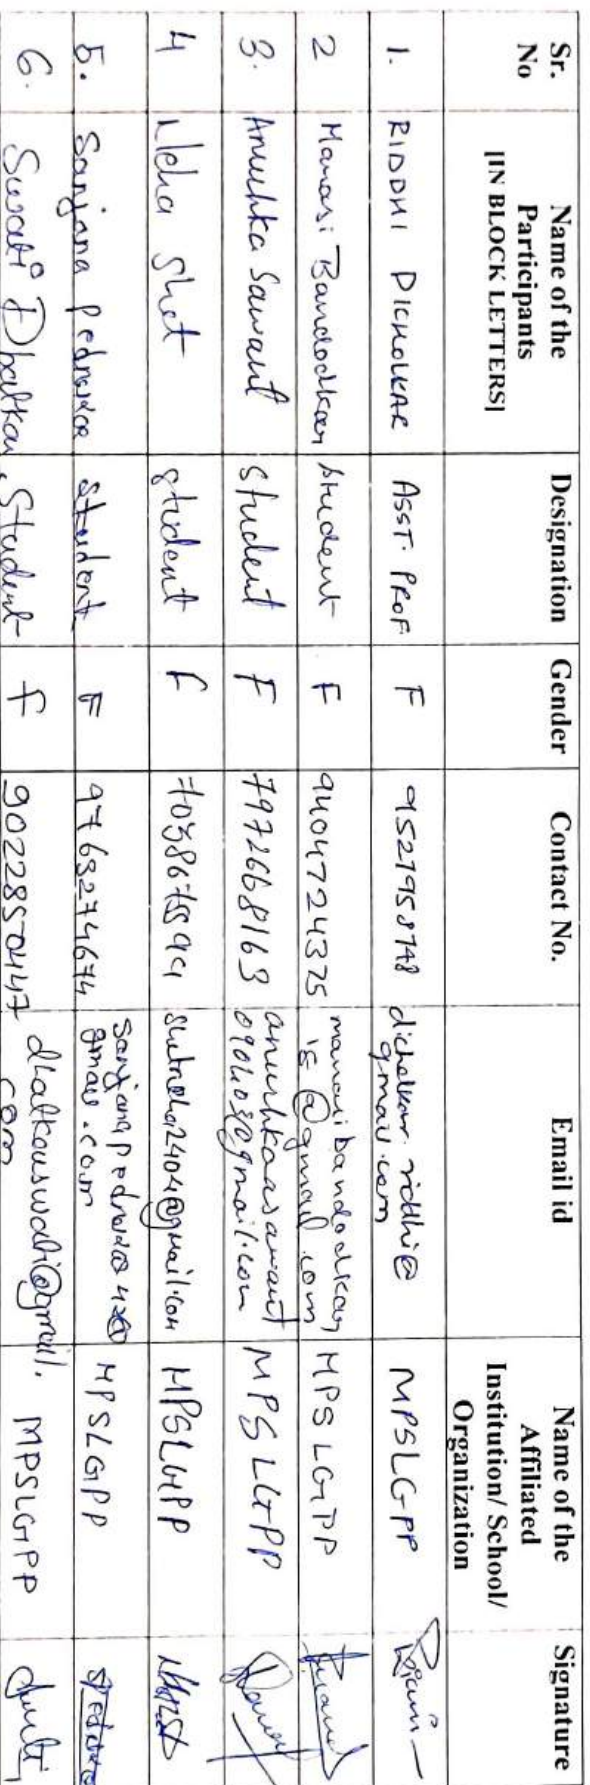 Sr. No
Name of the Participants [IN BLOCK LETTERS]
Designation
Gender
Contact No.
Email id
Name of the Affiliated Institution/ School/ Organization
Signature
1. RIDDHI DICHOLKAR ASST. PROF. F 9527958748 dicholkar.riddhi@ gmail.com MPSLGPP
2 Manasi Bandodkar student F 9404724325 manasibandodkar 15@gmail.com MPSLGPP
3. Anushka Sawant student F 7972668163 anushkaasawant 090403@gmail.com MPSLGPP
4 Neha Shet student F shetneha2404@gmail.com MPSLGPP
5. Sanjana Pednekar student F 9763274674 gmail.com MPSLGPP
6. Swati Dhatkar Student F 9022850447 dhatkarswati@gmail. com MPSLGPP